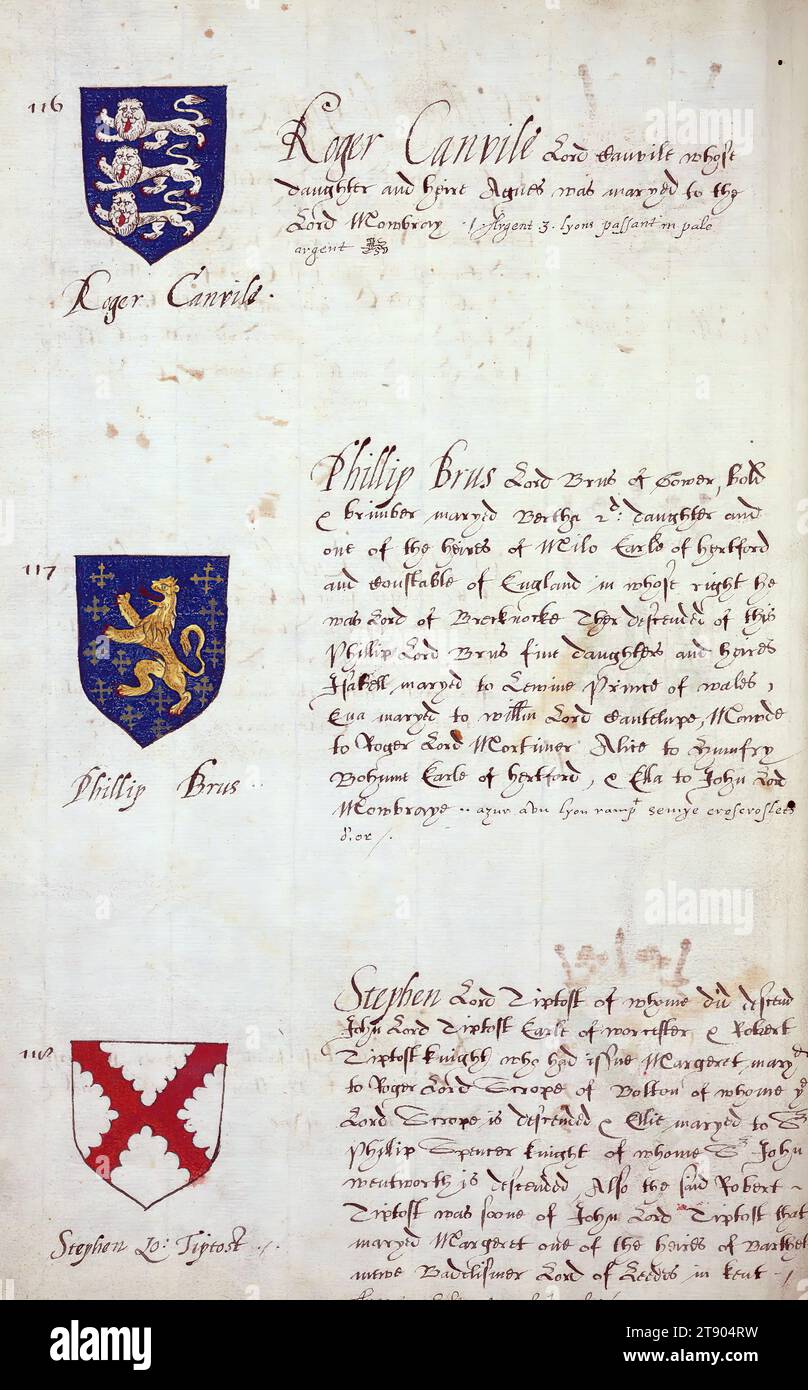 116
Roger Canvile Lord Canvile whose
daughter and heire Agnes was maryed to the
Lord Mowbray / Argent 3. lyons passant in pale
argent
Roger Canvile.
117
Phillip Brus Lord Brus of Gower, hold
& brimber maryed Bertha 2d: daughter and
one of the heires of Milo Earle of hertford
and Constable of England in whose right he
was Lord of Brecknocke Ther descended of this
Phillip Lord Brus five daughters and heires
Isabell maryed to Lewine Prince of wales,
Eva maryed to willm Lord Cantelupe, Mowde
to Roger Lord Mortimer Alice to Humfry
Bohume Earle of hertford, & Ella to John Lord
Mowbraye .. azur a un lyon rampt semye croscroslets
d'or /.
Phillip Brus ..
118
Stephen Lord Tiptost of whome did descend
John Lord Tiptost Earle of worcester & Robert
Tiptost knight who had issue Margeret maryd
to Roger Lord Scrope of Bolton of whome ye
Lord Scrope is descended & Ellie maryed to Sr
Phillip Spencer knight of whome Sr John
wentworth is descended Also the said Robert ~
Tiptost was soone of John Lord Tiptost that
maryed Margeret one of the heires of Barthel
mewe Badelismer Lord of Leedes in kent /
Stephen Lo: Tiptost /.
alamy
Image ID: 2T904RW
www.alamy.com